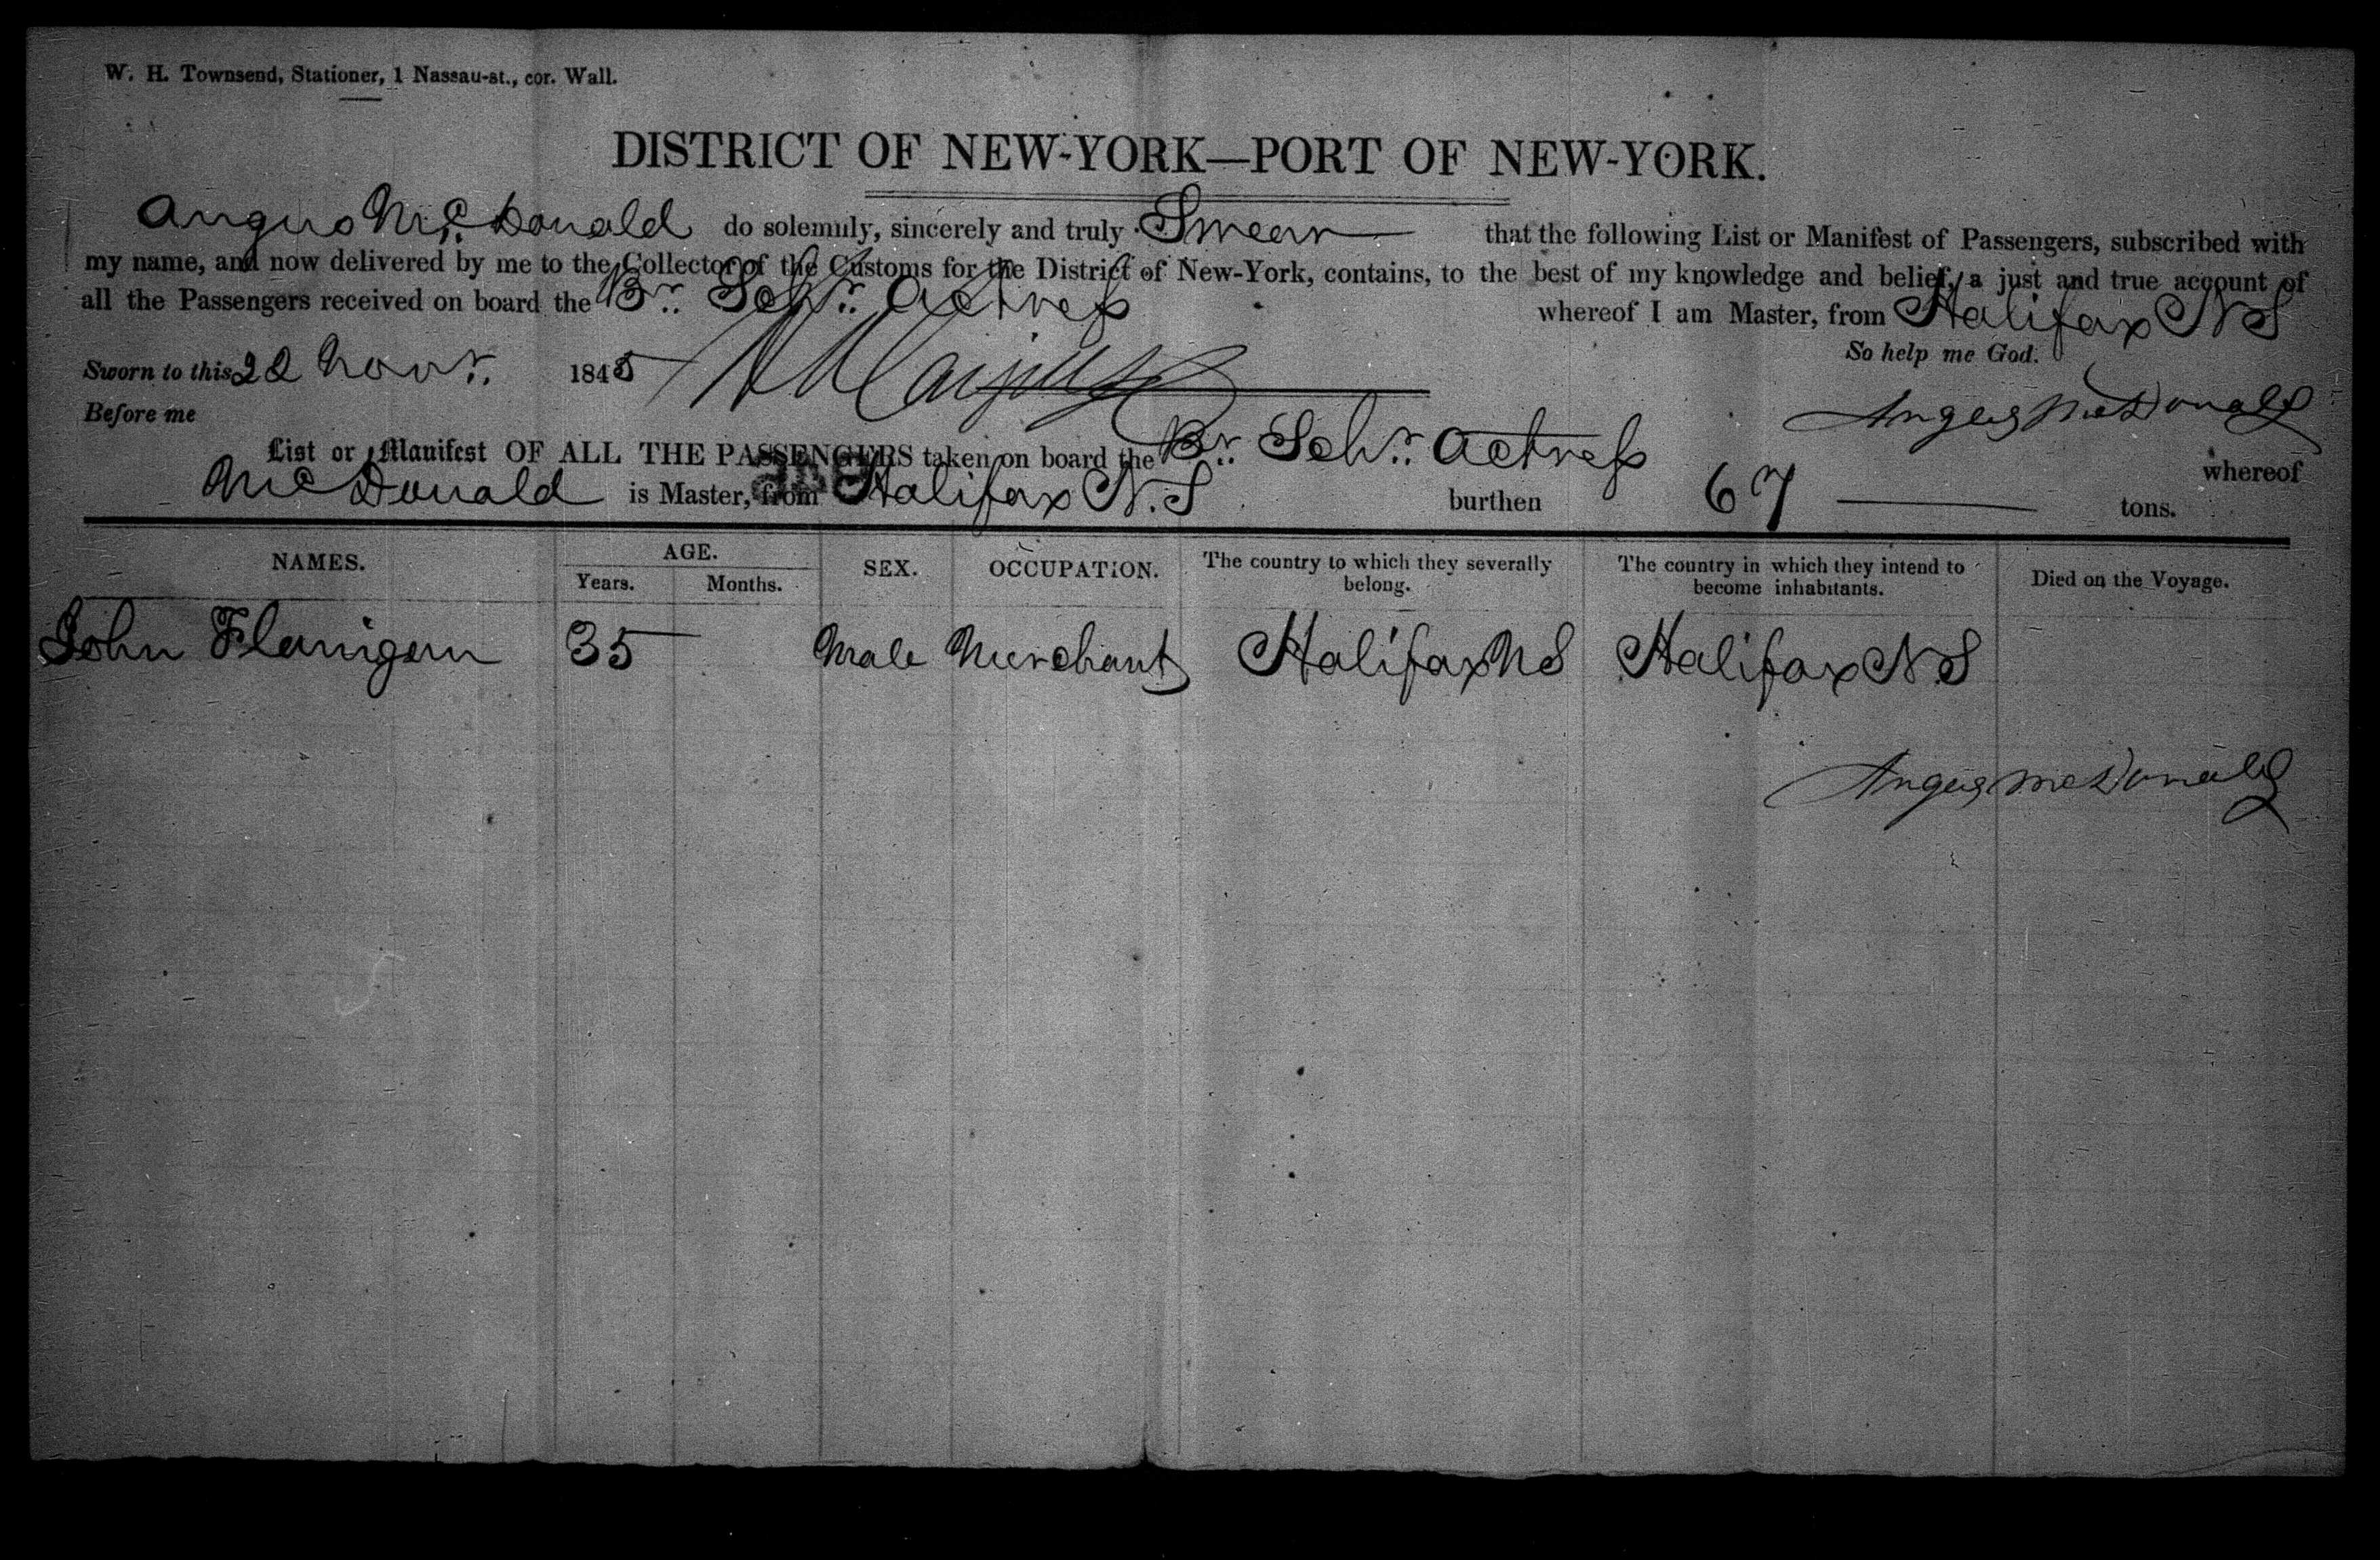 W. H. Townsend, Stationer, 1 Nassau-st., cor. Wall.
DISTRICT OF NEW-YORK—PORT OF NEW-YORK.
Angus McDonald do solemnly, sincerely and truly Swear that the following List or Manifest of Passengers, subscribed with
my name, and now delivered by me to the Collector of the Customs for the District of New-York, contains, to the best of my knowledge and belief, a just and true account of
all the Passengers received on board the Br. Schr. Actress whereof I am Master, from Halifax NS
So help me God.
Sworn to this 22 Novr. 1845
Angus McDonald
Before me
List or Manifest OF ALL THE PASSENGERS taken on board the Br. Schr. Actress whereof
McDonald is Master, from Halifax N.S burthen 67 tons.
NAMES. AGE. SEX. OCCUPATION. The country to which they severally belong. The country in which they intend to become inhabitants. Died on the Voyage.
Years. Months.
John Flanigan 35 Male Merchant Halifax NS Halifax N.S
Angus McDonald